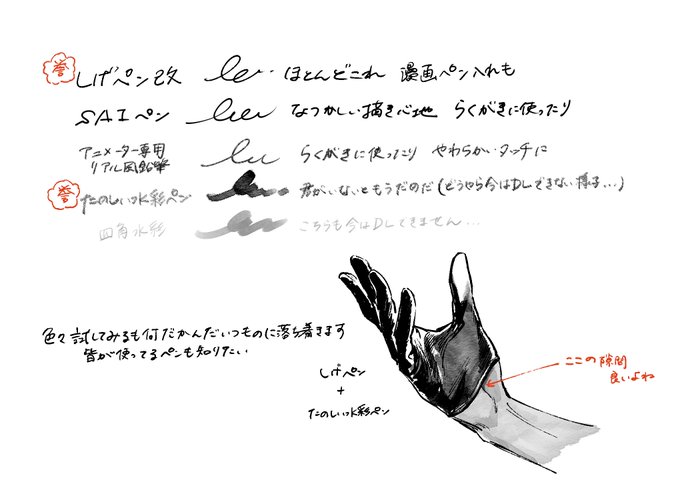 誉 しげペン改 ほとんどこれ 漫画ペン入れも
SAIペン なつかしい描き心地 らくがきに使ったり
アニメーター専用
リアル風鉛筆 らくがきに使ったり やわらかいタッチに
誉 たのしいっ水彩ペン 君がいないともうだめだ(どうやら今はDLできない様子...)
四角水彩 こちらも今はDLできません...
色々試してみるも何だかんだいつものに落ち着きます
皆が使ってるペンも知りたい
しげペン
+
たのしいっ水彩ペン
ここの隙間
良いよね